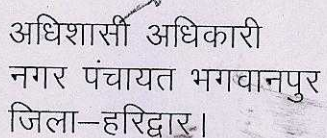 अधिशासी अधिकारी
नगर पंचायत भगवानपुर
जिला–हरिद्वार।